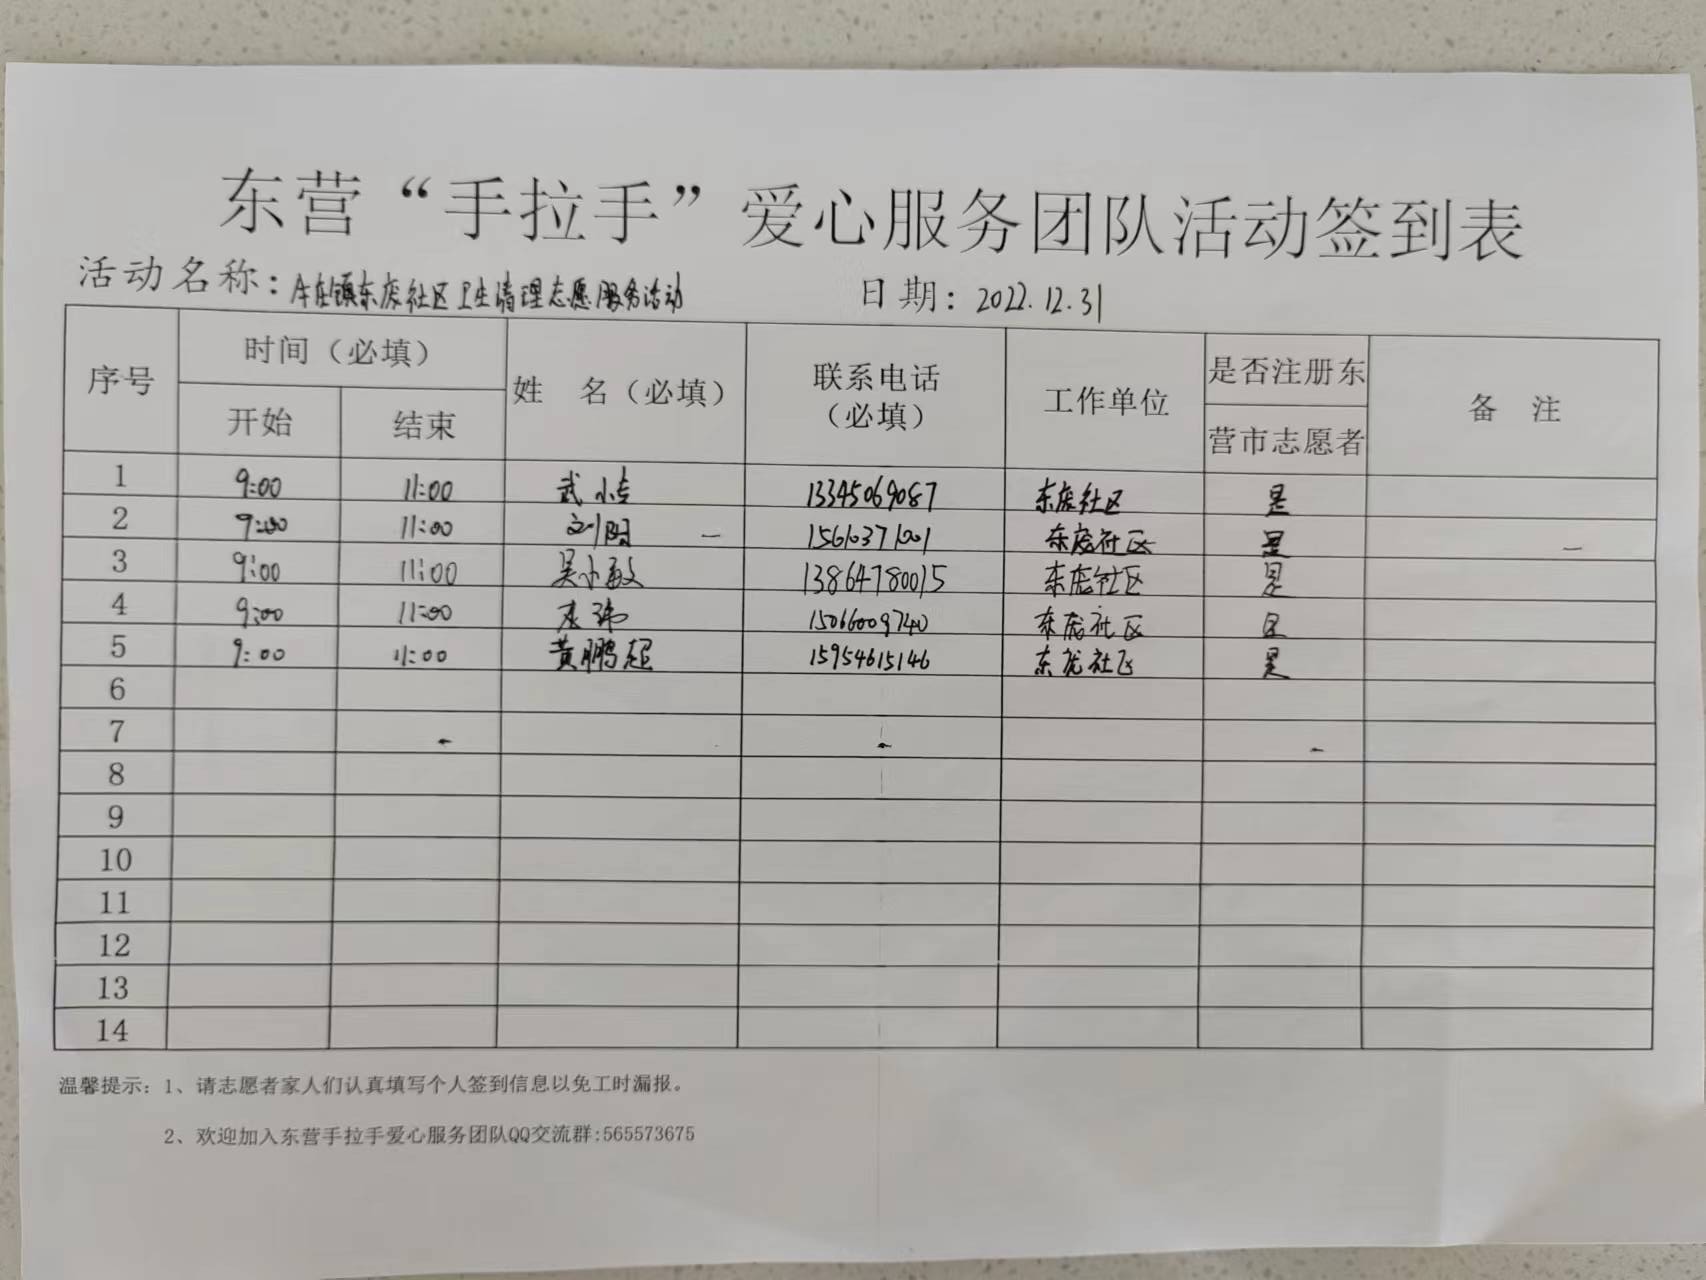 东营“手拉手”爱心服务团队活动签到表
活动名称：牛庄镇东庞社区卫生清理志愿服务活动 日期：2022.12.31
序号 时间（必填） 姓 名（必填） 联系电话（必填） 工作单位 是否注册东营市志愿者 备 注
开始 结束
1 9:00 11:00 武小 13345069087 东庞社区 是
2 9:00 11:00 刘阳 15610371001 东庞社区 是
3 9:00 11:00 吴小敏 13864780015 东庞社区 是
4 9:00 11:00 15066009740 东庞社区 是
5 9:00 11:00 黄鹏超 15954615146 东庞社区 是
6
7
8
9
10
11
12
13
14
温馨提示：1、请志愿者家人们认真填写个人签到信息以免工时漏报。
2、欢迎加入东营手拉手爱心服务团队QQ交流群:565573675